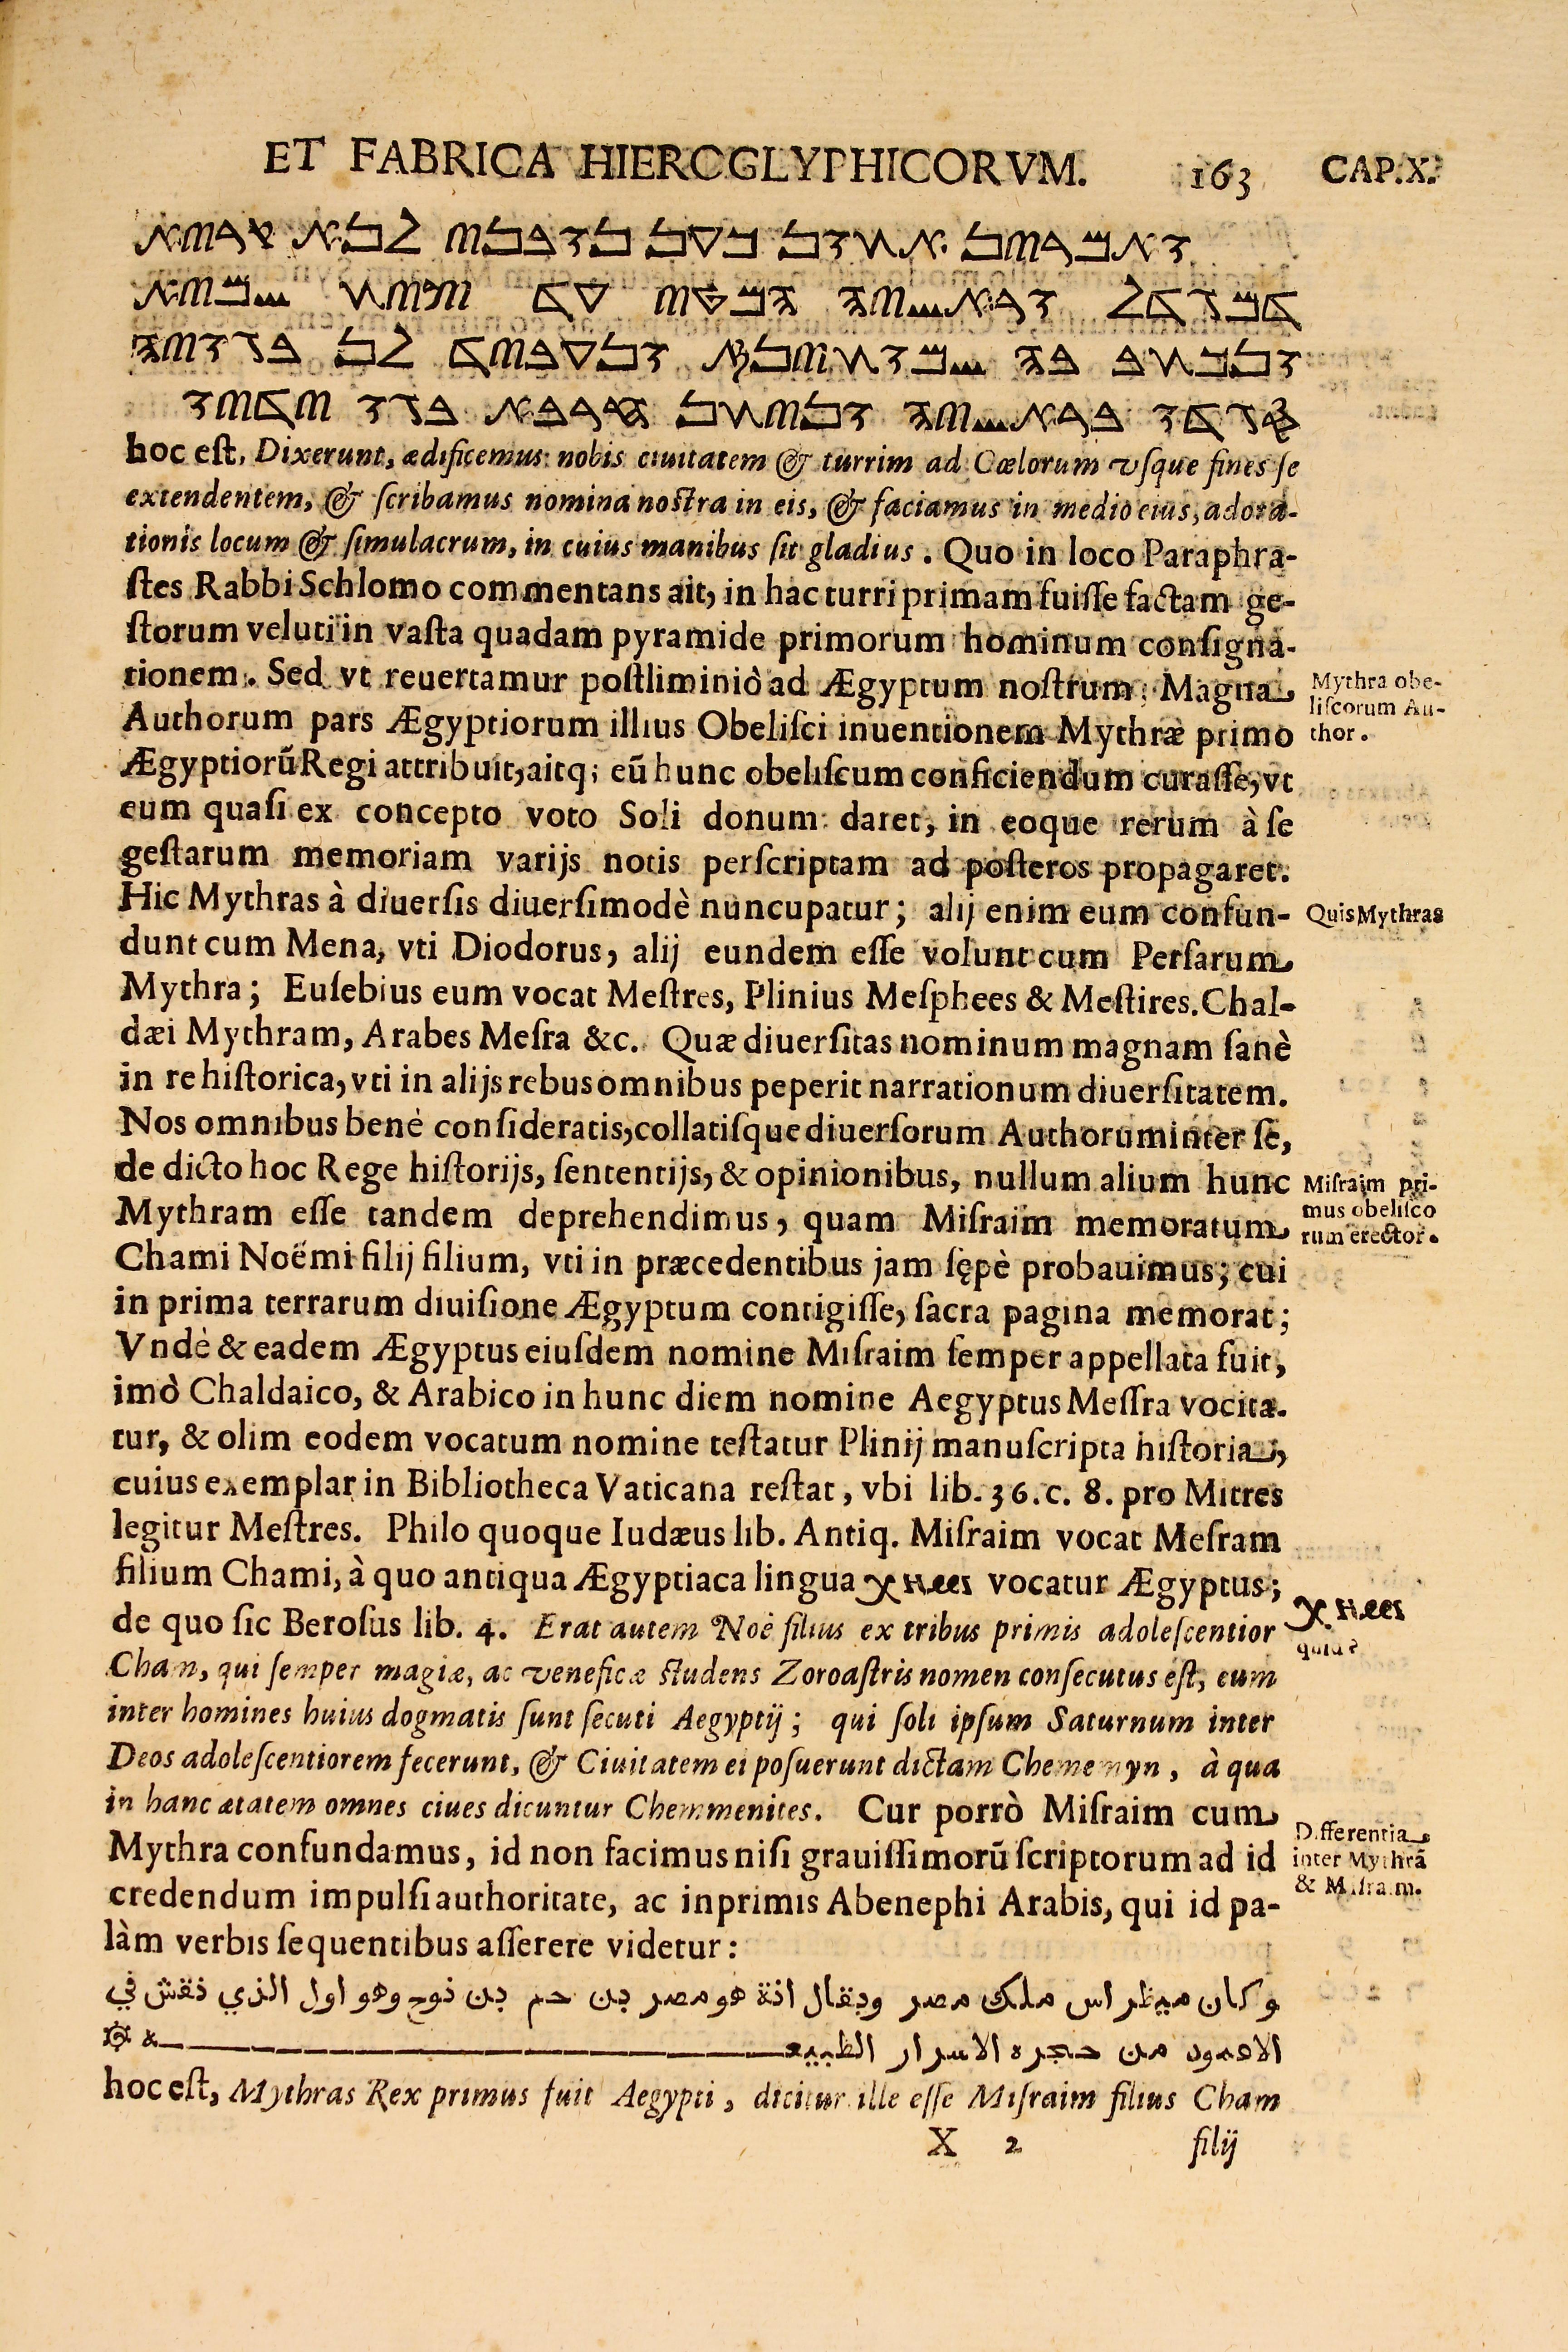 ET FABRICA HIEROGLYPHICORVM. 163 CAP. X.
דאמרין אתדן כען נדבני לנא קריא
דמגדל דראשיה המטי עד צית שמיא
דנכתב בה שמדתינא דנעביד לן בגדיה
סגדה בראשיה דניתן חרבא בגד ידיד
hoc est, Dixerunt, ædificemus nobis ciuitatem & turrim ad Cœlorum vſque fines ſe
extendentem, & ſcribamus nomina noſtra in eis, & faciamus in medio eius, adora-
tionis locum & ſimulacrum, in cuius manibus ſit gladius. Quo in loco Paraphra-
ſtes Rabbi Schlomo commentans ait, in hac turri primam fuiſſe factam ge-
ſtorum veluti in vaſta quadam pyramide primorum hominum conſigna-
tionem. Sed vt reuertamur poſtliminiò ad Ægyptum noſtrum. Magna
Mythra obe-
liſcorum Au-
thor.
Authorum pars Ægyptiorum illius Obeliſci inuentionem Mythræ primo
Ægyptiorũ Regi attribuit, aitq; eũ hunc obeliſcum conficiendum curaſſe, vt
eum quaſi ex concepto voto Soli donum daret, in eoque rerum à ſe
geſtarum memoriam varijs notis perſcriptam ad poſteros propagaret.
Hic Mythras à diuerſis diuerſimodè nuncupatur; alij enim eum confun-
Quis Mythras
dunt cum Mena, vti Diodorus, alij eundem eſſe volunt cum Perſarum
Mythra; Euſebius eum vocat Meſtres, Plinius Meſphees & Meſtires. Chal-
dæi Mythram, Arabes Meſra &c. Quæ diuerſitas nominum magnam ſanè
in re hiſtorica, vti in alijs rebus omnibus peperit narrationum diuerſitatem.
Nos omnibus benè conſideratis, collatiſque diuerſorum Authorum inter ſe,
de dicto hoc Rege hiſtorijs, ſententijs, & opinionibus, nullum alium hunc
Miſraim pri-
mus obeliſco
rum erector.
Mythram eſſe tandem deprehendimus, quam Miſraim memoratum
Chami Noëmi filij filium, vti in præcedentibus jam ſępè probauimus; cui
in prima terrarum diuiſione Ægyptum contigiſſe, ſacra pagina memorat;
Vndè & eadem Ægyptus eiuſdem nomine Miſraim ſemper appellata fuit,
imò Chaldaico, & Arabico in hunc diem nomine Aegyptus Meſſra vocita-
tur, & olim eodem vocatum nomine teſtatur Plinij manuſcripta hiſtoria,
cuius exemplar in Bibliotheca Vaticana reſtat, vbi lib. 36. c. 8. pro Mitres
legitur Meſtres. Philo quoque Iudæus lib. Antiq. Miſraim vocat Meſram
filium Chami, à quo antiqua Ægyptiaca lingua ⲭⲏⲙⲓ vocatur Ægyptus;
ⲭⲏⲙⲓ
quid?
de quo ſic Beroſus lib. 4. Erat autem Noë filius ex tribus primis adoleſcentior
Cham, qui ſemper magiæ, ac veneficæ ſtudens Zoroaſtris nomen conſecutus eſt, eum
inter homines huius dogmatis ſunt ſecuti Aegyptij; qui ſoli ipſum Saturnum inter
Deos adoleſcentiorem fecerunt, & Ciuitatem ei poſuerunt dictam Chememyn, à qua
in hanc ætatem omnes ciues dicuntur Chemmenites. Cur porrò Miſraim cum
Differentia
inter Mythrã
& Miſraim.
Mythra confundamus, id non facimus niſi grauiſſimorũ ſcriptorum ad id
credendum impulſi authoritate, ac inprimis Abenephi Arabis, qui id pa-
làm verbis ſequentibus aſſerere videtur:
وكان ميظراس ملك مصر ويقال انة هو مصر بن حم بن نوح وهو اول الذي نقش في
الاعمود من حجره الاسرار الطبيعه
hoc eſt, Mythras Rex primus fuit Aegypti, dicitur ille eſſe Miſraim filius Cham
X 2 filij